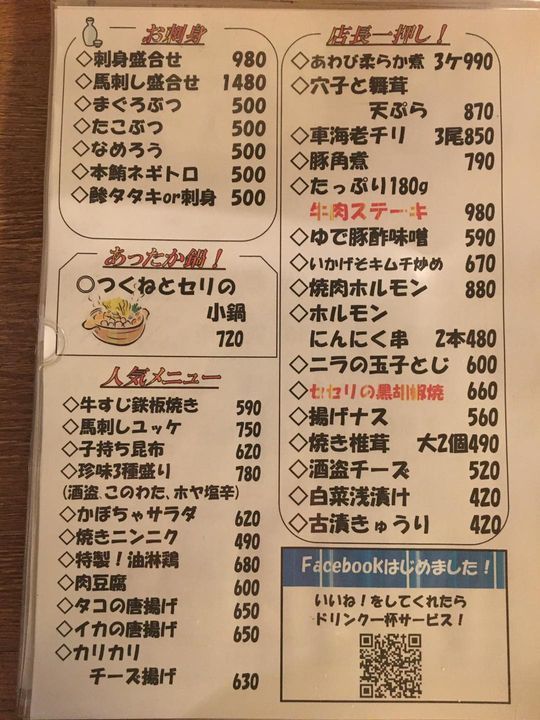 お刺身
◇刺身盛合せ 980
◇馬刺し盛合せ 1480
◇まぐろぶつ 500
◇たこぶつ 500
◇なめろう 500
◇本鮪ネギトロ 500
◇鯵タタキor刺身 500
あったか鍋！
○つくねとセリの
小鍋
720
人気メニュー
◇牛すじ鉄板焼き 590
◇馬刺しユッケ 750
◇子持ち昆布 620
◇珍味3種盛り 780
(酒盗、このわた、ホヤ塩辛)
◇かぼちゃサラダ 620
◇焼きニンニク 490
◇特製！油淋鶏 680
◇肉豆腐 600
◇タコの唐揚げ 650
◇イカの唐揚げ 650
◇カリカリ
チーズ揚げ 630
店長一押し！
◇あわび柔らか煮 3ケ990
◇穴子と舞茸
天ぷら 870
◇車海老チリ 3尾850
◇豚角煮 790
◇たっぷり180g
牛肉ステーキ 980
◇ゆで豚酢味噌 590
◇いかげそキムチ炒め 670
◇焼肉ホルモン 880
◇ホルモン
にんにく串 2本480
◇ニラの玉子とじ 600
◇セセリの黒胡椒焼 660
◇揚げナス 560
◇焼き椎茸 大2個490
◇酒盗チーズ 520
◇白菜浅漬け 420
◇古漬きゅうり 420
Facebookはじめました！
いいね！をしてくれたら
ドリンク一杯サービス！